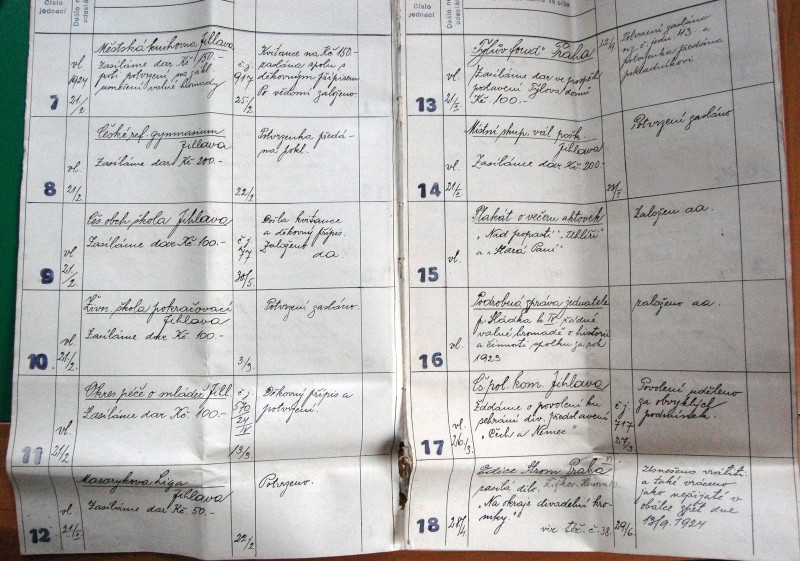 Číslo
jednací
Došlo ne
odesláno
Městská knihovna Jihlava
Zasíláme dar Kč 150.-
proti potvrzení na zákl.
usnesení valné hromady
vl
1924
21/2
7
č.j.
917
25/2
Kvitance na Kč 150.-
zaslána spolu s
děkovným přípisem
vědomí založeno
České ref. gymnasium
Jihlava
Zasíláme dar Kč 200.-
vl.
21/2
8
22/2
Potvrzenka předá-
na pokl.
Čes. obch. škola Jihlava
Zasíláme dar Kč 100.-
vl.
21/2
9
č.j.
77
30/5
Došla kvitance
a děkovný přípis.
Založeno
aa.
Živn. škola pokračovací
Jihlava
Zasíláme dar Kč 100.-
vl.
21/2
10
3/3
Potvrzení zasláno.
Okres. péče o mládež Jihl.
Zasíláme dar Kč 100.-
vl.
21/2
11
č.j.
570
24
IV
13/3
Děkovný přípis a
potvrzení.
Masarykova liga
Jihlava
Zasíláme dar Kč 50.-
vl
21/2
12
22/2
Potvrzeno.
Číslo
jednací
Došlo ne
odeslán
"Tylův fond" Praha
Zasíláme dar ve prospěch
postavení Tylova domu
Kč 100.-
vl.
21/2
13
22/4
Potvrzení zasláno
43. a
potvrzenka předána
pokladníkovi.
Místní skup. vál. pošk.
Jihlava
Zasíláme dar Kč 200.-
vl.
21/2
14
23/2
Potvrzení zasláno
Plakát o večeru aktovek
"Nad propastí" "Uhlíři"
a "Hluchá Paní"
vl.
15
Založen aa.
Podrobná zpráva jednatele
p. Sládka k IV. řádné
valné hromadě o historii
a činnosti spolku za rok
1923
vl.
16
založeno aa.
Čs. pol. kom. Jihlava
Žádáme o povolení ku
sehrání div. představení
"Čech a Němec"
vl.
26/3
17
č.j.
717
27/3
Povolení uděleno
za obvyklých
podmínek.
Edice Strom Praha
zasílá dílo,
"Na okraje divadelní kro-
niky."
viz též. č. 38.
28/4
18
29/6
usneseno vrátiti
a také vráceno
jako nepřijaté v
obálce zpět dne
13/9. 1924